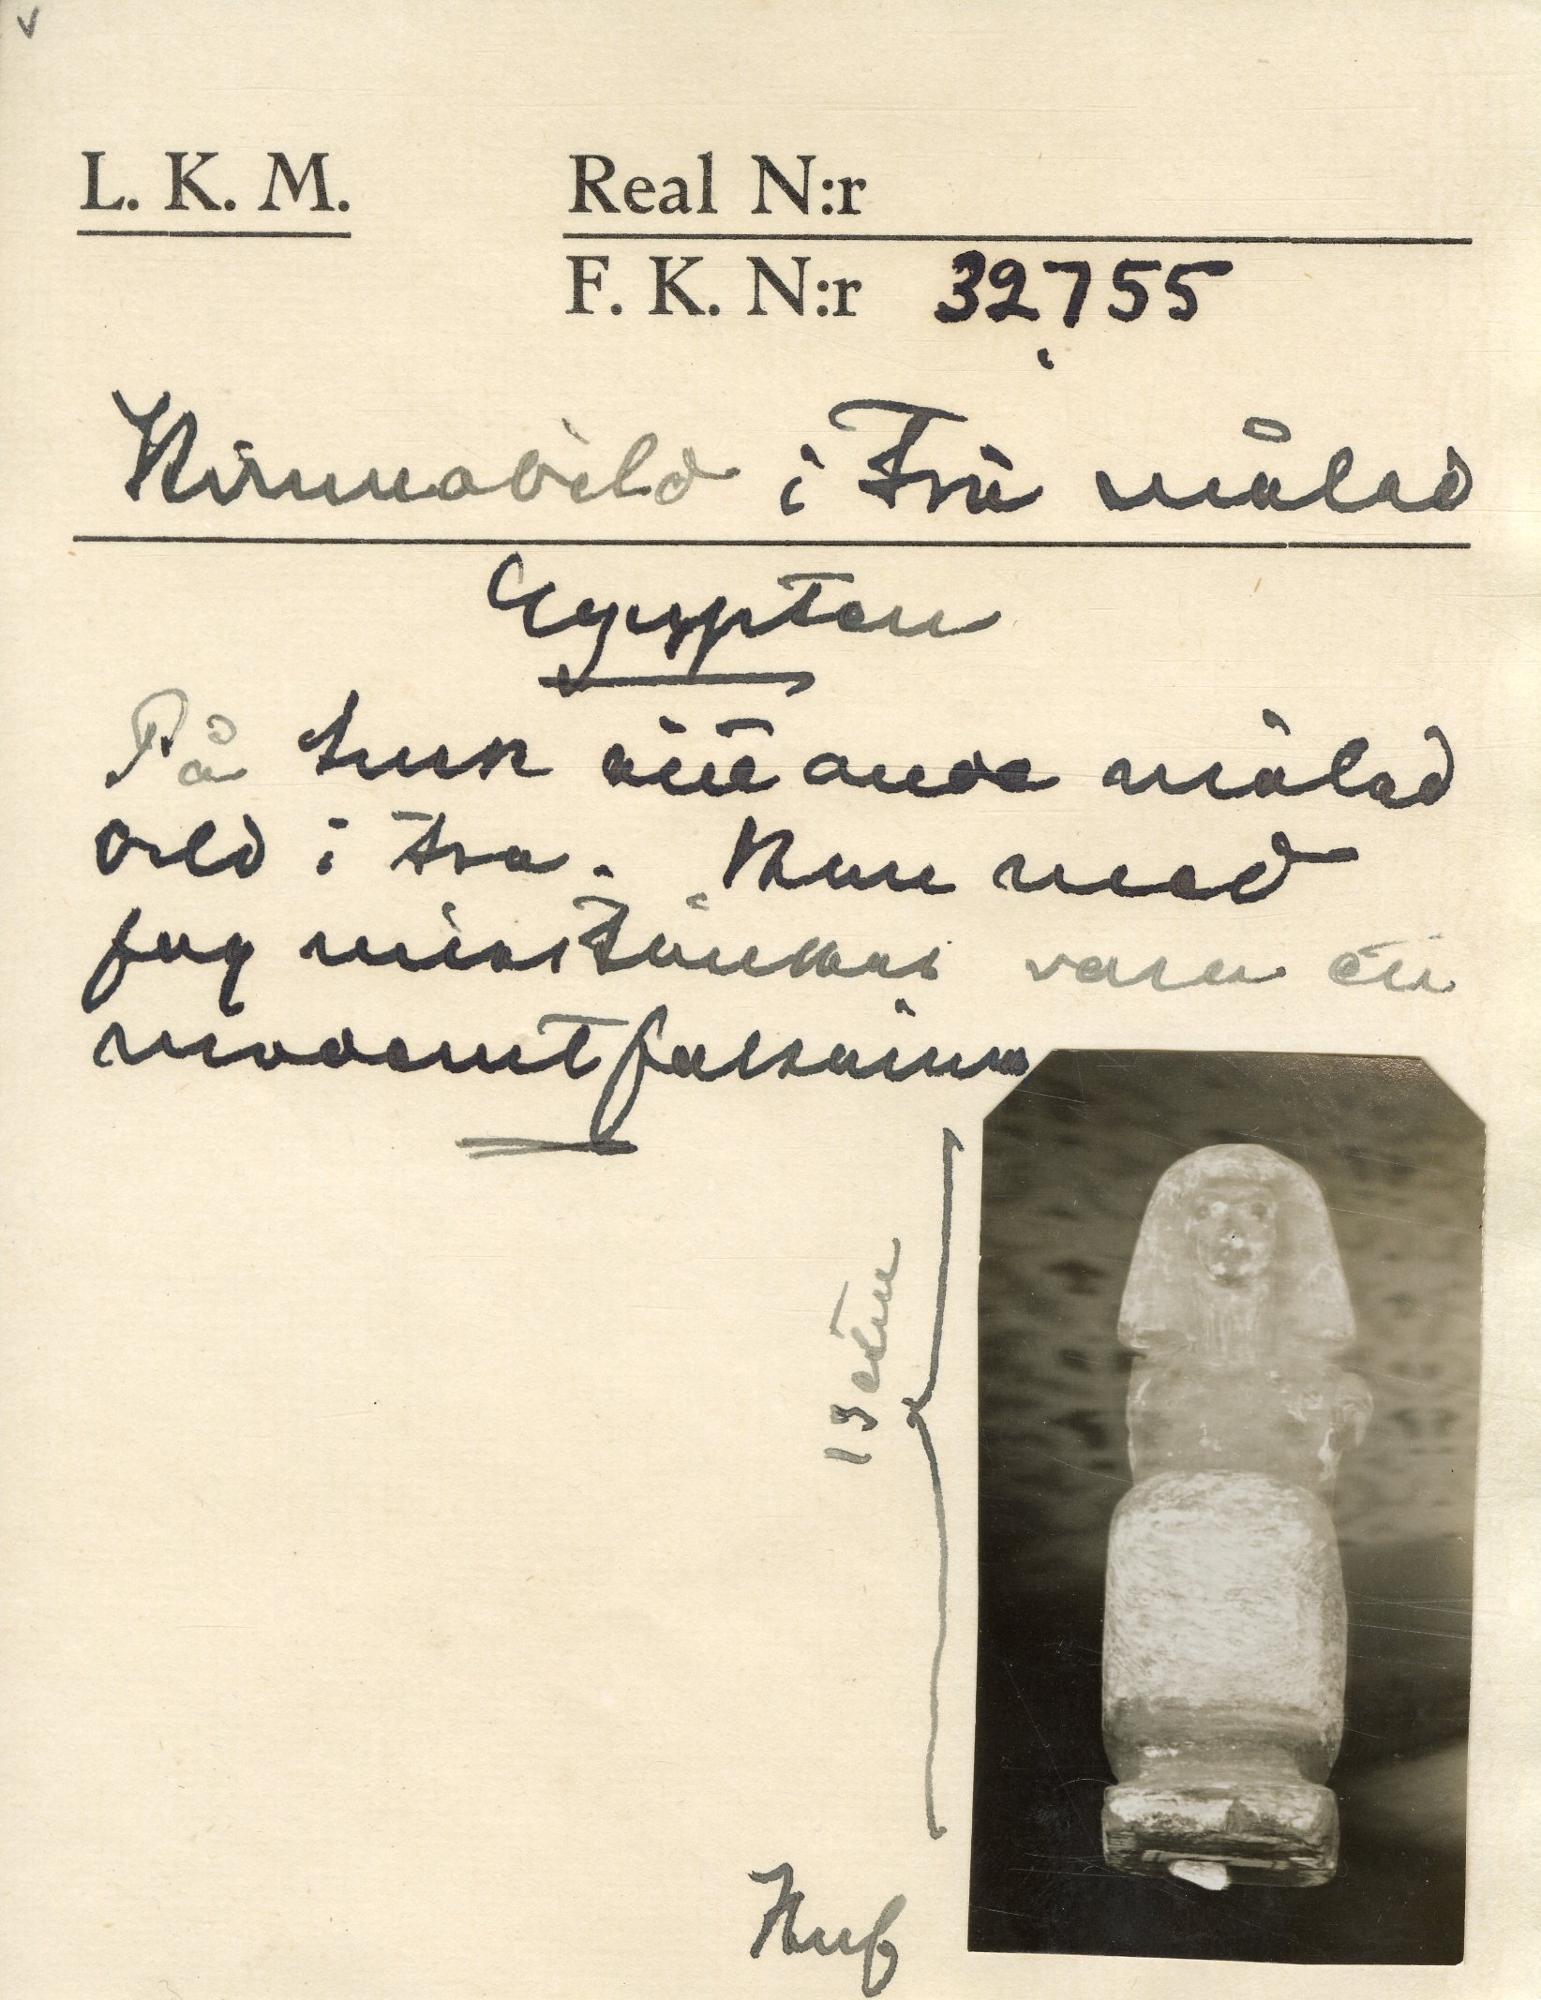 L. K. M. Real N:r
F. K. N:r 32755
Kvinnobild i Trä målad
Egypten
På huk sittande målad
bild i trä. Kan med
fog misstänkas vara en
modernt falsarium
13 ctm